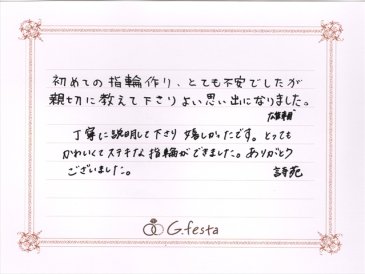 初めての指輪作り、とても不安でしたが
親切に教えて下さりよい思い出になりました。
丁寧に説明して下さり嬉しかったです。とっても
かわいくてステキな指輪ができました。ありがとう
ございました。
詩苑
G.festa